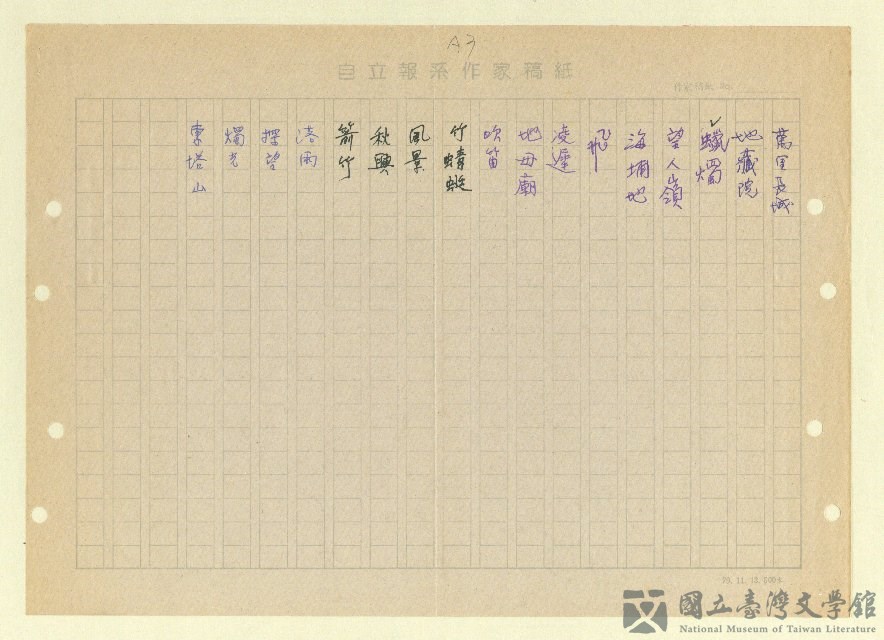 A3
自立報系作家稿紙
萬里長城
地藏院
蠟燭
望人嶺
海埔地
飛
凌遲
地母廟
吹笛
竹蜻蜓
風景
秋興
箭竹
落雨
探望
燭光
東塔山
國立臺灣文學館
National Museum of Taiwan Literature